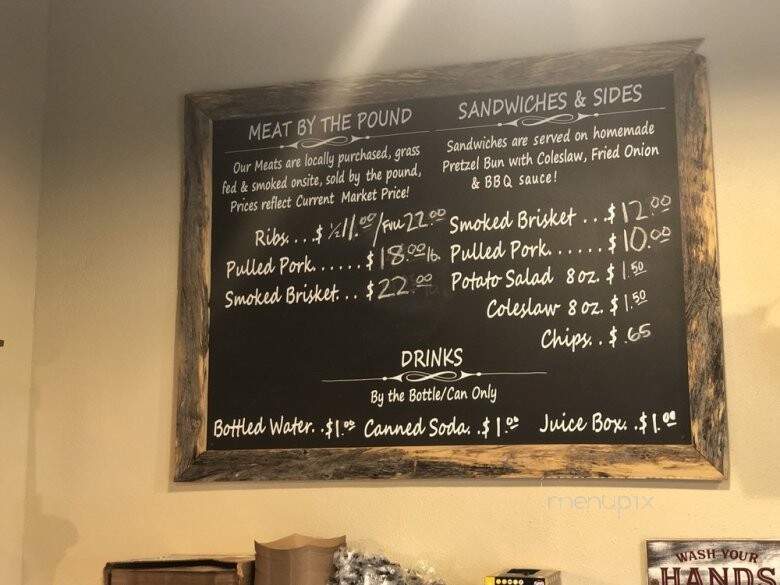 MEAT BY THE POUND
Our Meats are locally purchased, grass
fed & smoked onsite, sold by the pound,
Prices reflect Current Market Price!
Ribs. . . . $ ½ 11.00 / Full 22.00
Pulled Pork. . . . . . $ 18.00 lb.
Smoked Brisket. . . $ 22.00
SANDWICHES & SIDES
Sandwiches are served on homemade
Pretzel Bun with Coleslaw, Fried Onion
& BBQ sauce!
Smoked Brisket . . . $ 12.00
Pulled Pork. . . . . . $ 10.00
Potato Salad 8 oz. $ 1.50
Coleslaw 8 oz. $ 1.50
Chips. . $ .65
DRINKS
By the Bottle/Can Only
Bottled Water. . $1.00 Canned Soda. . $ 1.00 Juice Box. . $ 1.00
menupix
WASH YOUR
HANDS